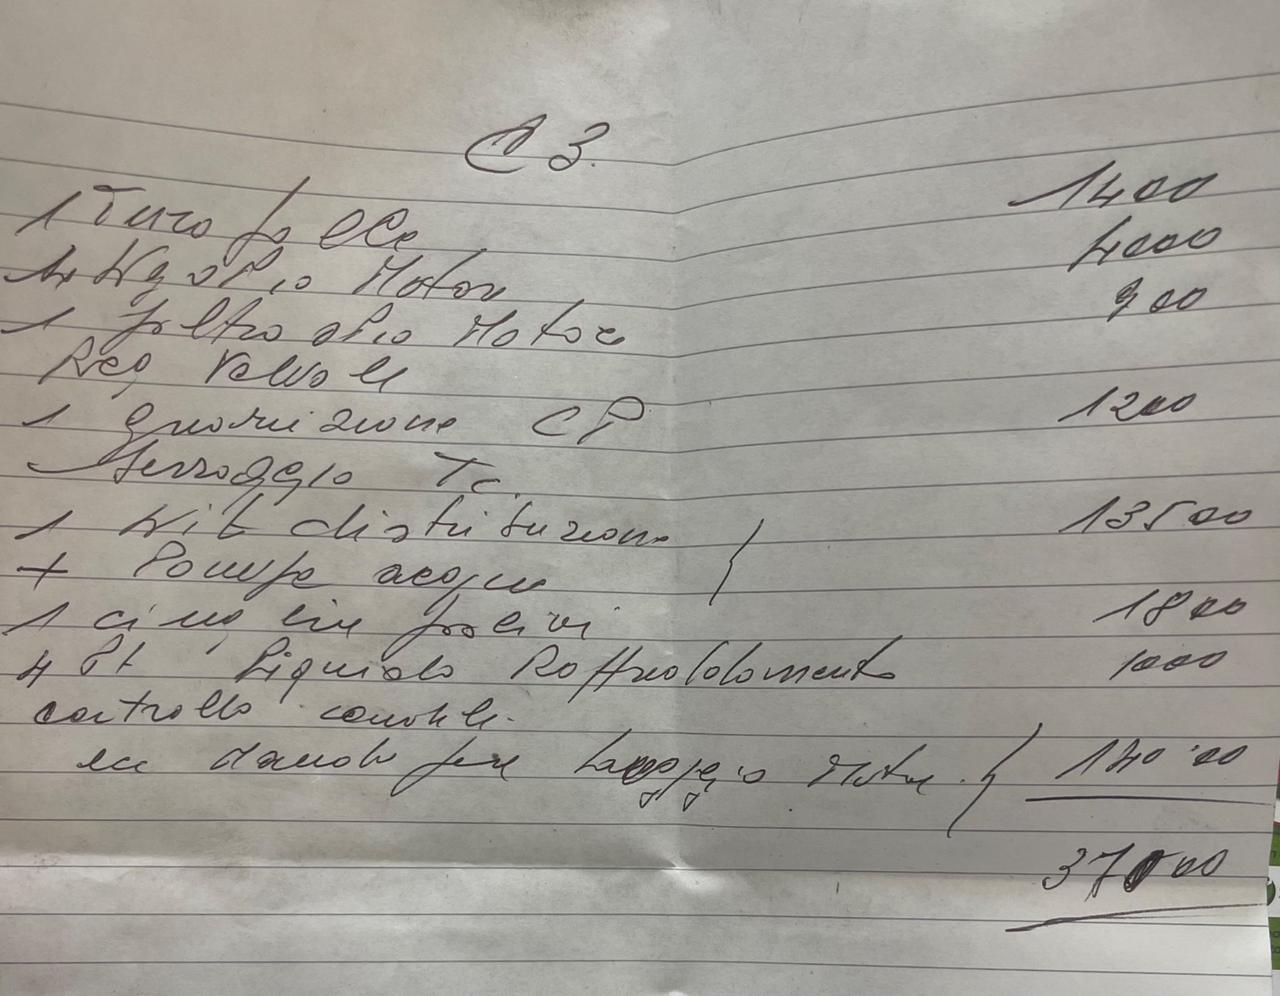 C 3.
1 Turafalle 1400
4 Kg olio Motore 4000
1 filtro olio Motore 900
Reg Valvole
1 guarnizione CP 1200
Serraggio Tc.
1 Kit distribuzione 13500
+ Pompa acqua
1 cinghia 1800
4 Lt Liquido Raffreddamento 1000
controllo
Mando motore 14000
37000